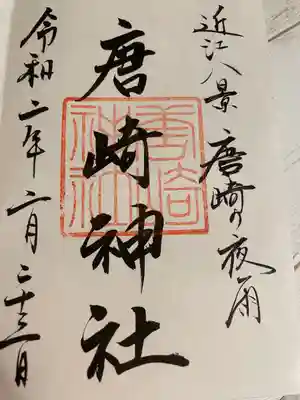 近江八景 唐崎の夜雨
唐崎神社
令和二年二月二十三日